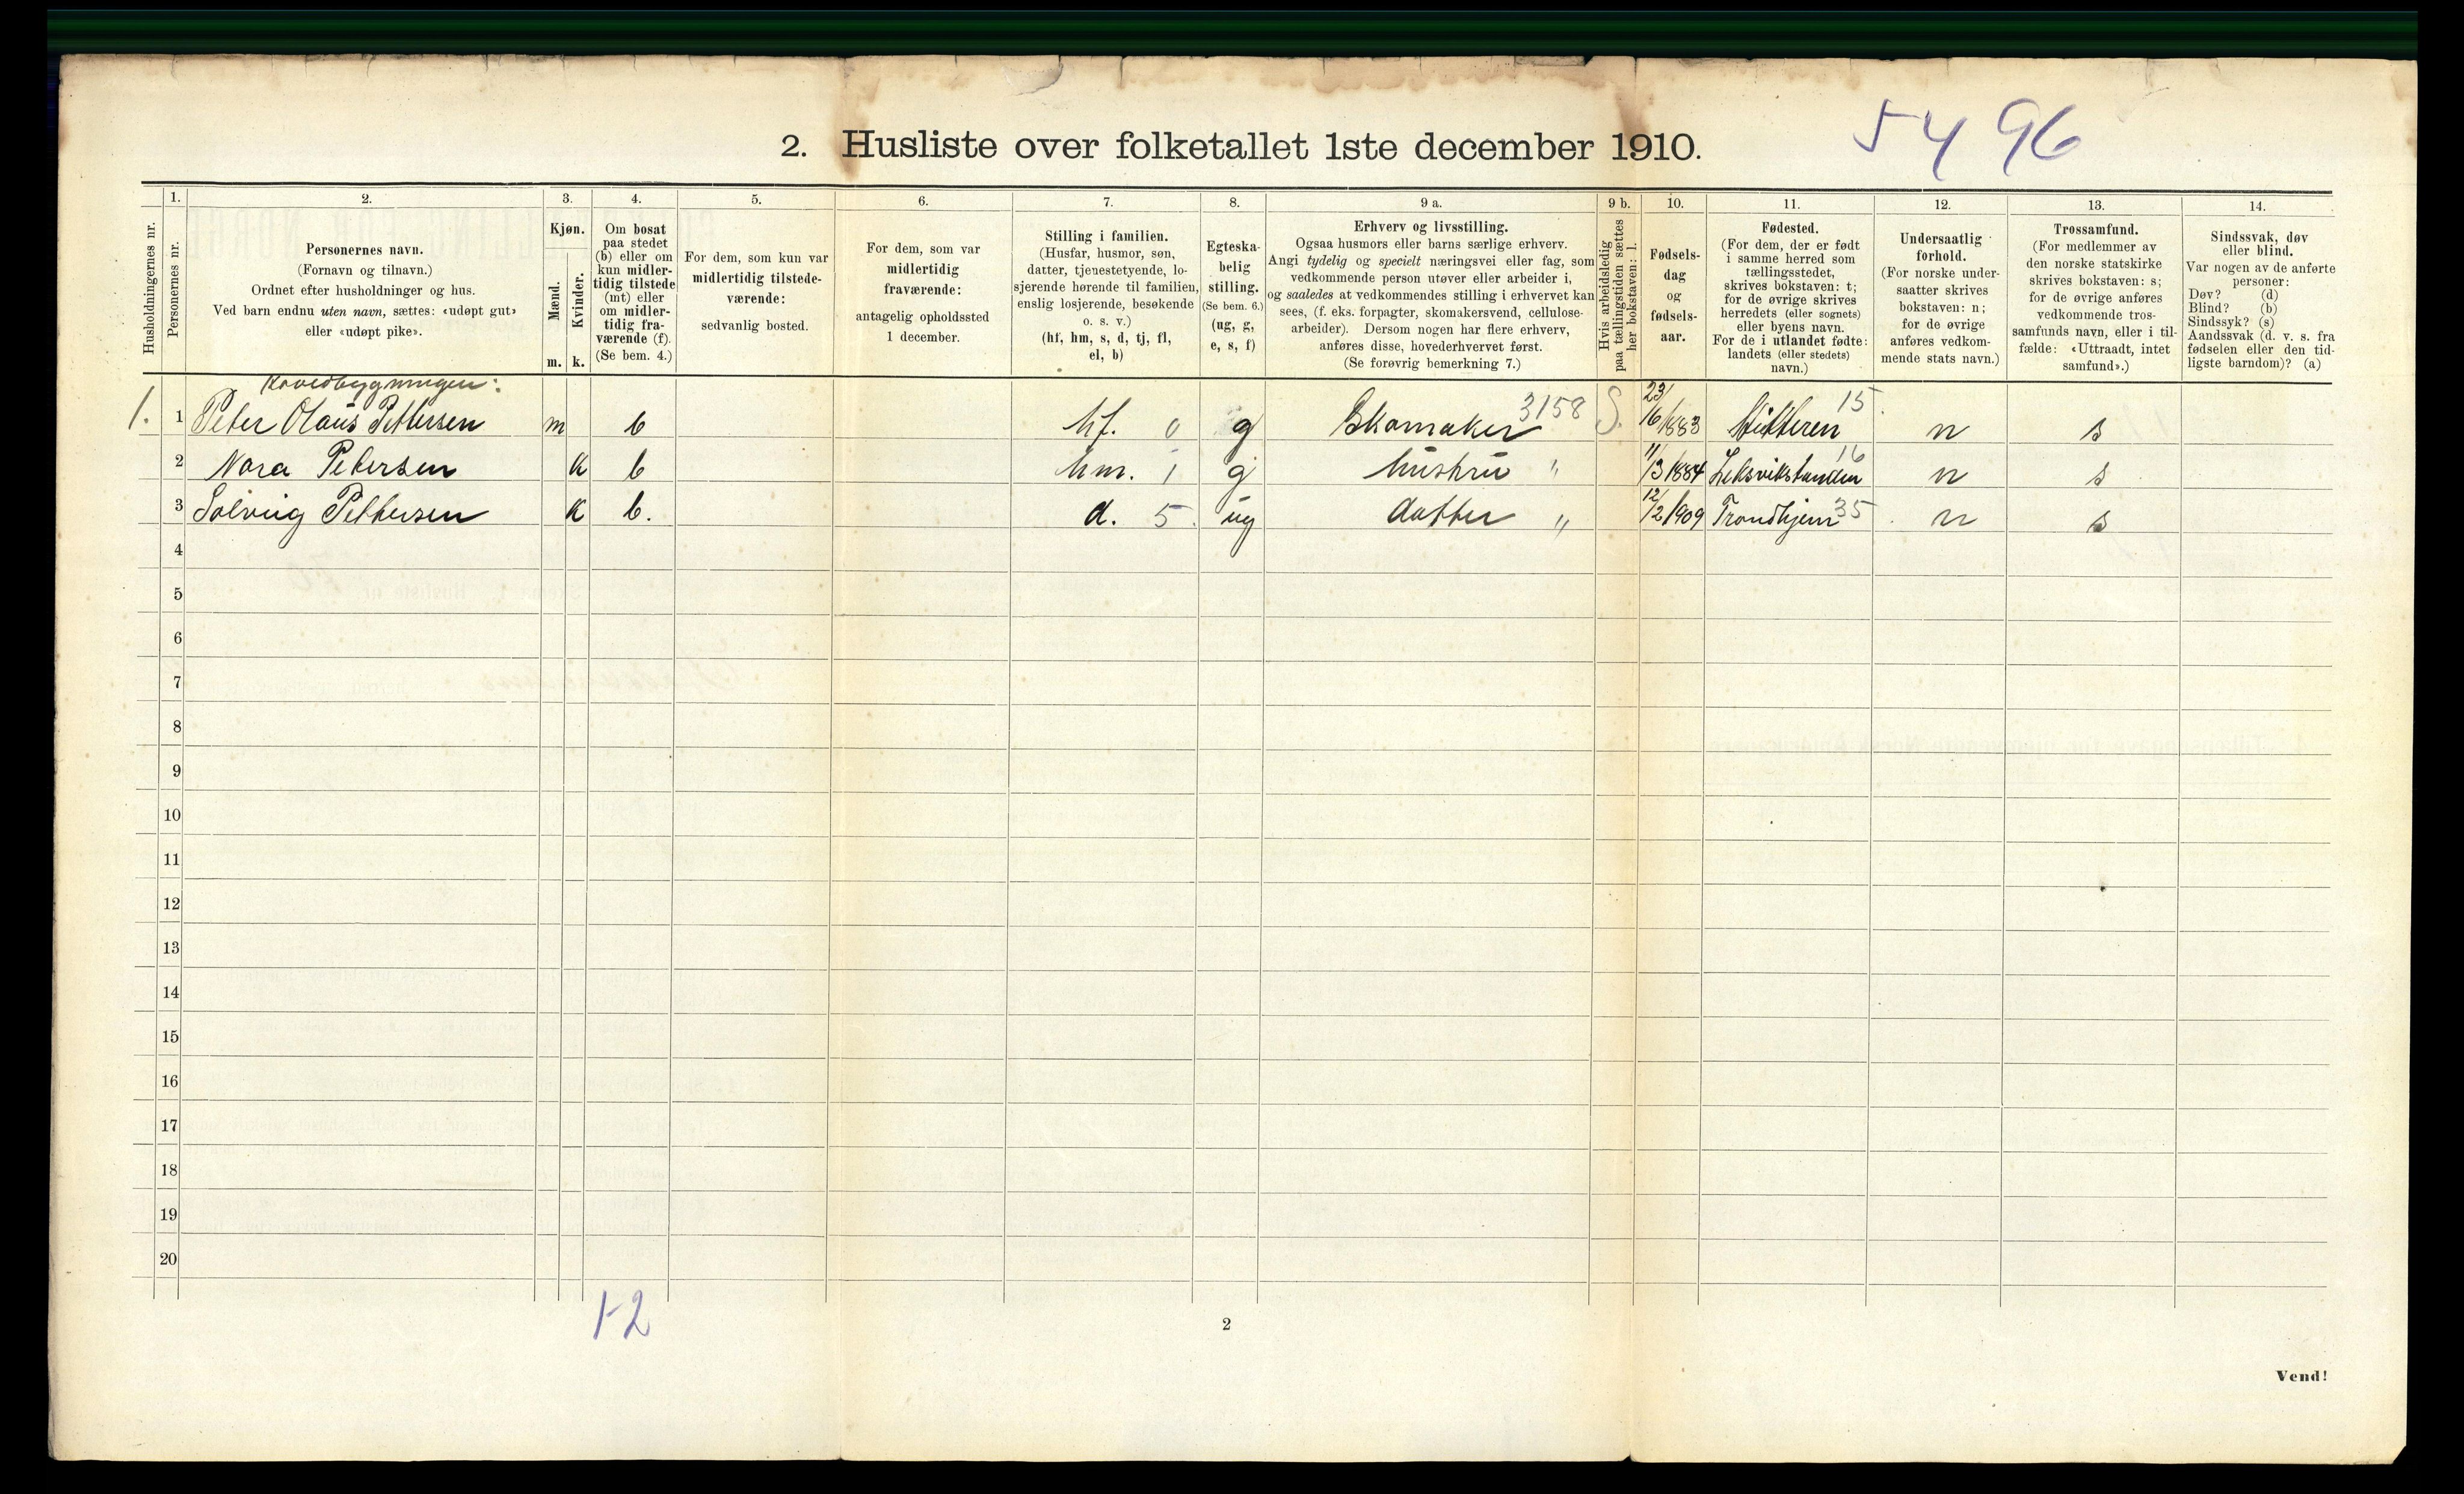 5496
2. Husliste over folketallet 1ste december 1910.
Husholdningernes nr.
1.
Personernes nr.
2.
Personernes navn.
(Fornavn og tilnavn.)
Ordnet efter husholdninger og hus.
Ved barn endnu uten navn, sættes: «udøpt gut»
eller «udøpt pike».
3.
Kjøn.
Mænd.
Kvinder.
m. k.
4.
Om bosat
paa stedet
(b) eller om
kun midler-
tidig tilstede
(mt) eller
om midler-
tidig fra-
værende (f).
(Se bem. 4.)
5.
For dem, som kun var
midlertidig tilstede-
værende:
sedvanlig bosted.
6.
For dem, som var
midlertidig
fraværende:
antagelig opholdssted
1 december.
7.
Stilling i familien.
(Husfar, husmor, søn,
datter, tjenestetyende, lo-
sjerende hørende til familien,
enslig losjerende, besøkende
o. s. v.)
(hf, hm, s, d, tj, fl,
el, b)
8.
Egteska-
belig
stilling.
(Se bem. 6.)
(ug, g,
e, s, f)
9 a.
Erhverv og livsstilling.
Ogsaa husmors eller barns særlige erhverv.
Angi tydelig og specielt næringsvei eller fag, som
vedkommende person utøver eller arbeider i,
og saaledes at vedkommendes stilling i erhvervet kan
sees, (f. eks. forpagter, skomakersvend, cellulose-
arbeider). Dersom nogen har flere erhverv,
anføres disse, hovederhvervet først.
(Se forøvrig bemerkning 7.)
9 b.
Hvis arbeidsledig
paa tællingstiden sættes
her bokstaven: l.
10.
Fødsels-
dag
og
fødsels-
aar.
11.
Fødested.
(For dem, der er født
i samme herred som
tællingsstedet,
skrives bokstaven: t;
for de øvrige skrives
herredets (eller sognets)
eller byens navn.
For de i utlandet fødte:
landets (eller stedets)
navn.)
12.
Undersaatlig
forhold.
(For norske under-
saatter skrives
bokstaven: n;
for de øvrige
anføres vedkom-
mende stats navn.)
13.
Trossamfund.
(For medlemmer av
den norske statskirke
skrives bokstaven: s;
for de øvrige anføres
vedkommende tros-
samfunds navn, eller i til-
fælde: «Uttraadt, intet
samfund».)
14.
Sindssvak, døv
eller blind.
Var nogen av de anførte
personer:
Døv? (d)
Blind? (b)
Sindssyk? (s)
Aandssvak (d. v. s. fra
fødselen eller den tid-
ligste barndom)? (a)
Hovedbygningen:
1. 1 Peter Olaus Pettersen m b hf. 0 g Skomaker 3158 S. 23/6 1883 Hitteren 15 n s
2 Nora Petersen k b hm. 1 g hustru " 11/3 1884 16 n s
3 Solveig Pettersen k b. d. 5 ug datter " 12/2 1909 Trondhjem 35 n s
4
5
6
7
8
9
10
11
12
13
14
15
16
17
18
19
20
1-2
2
Vend!